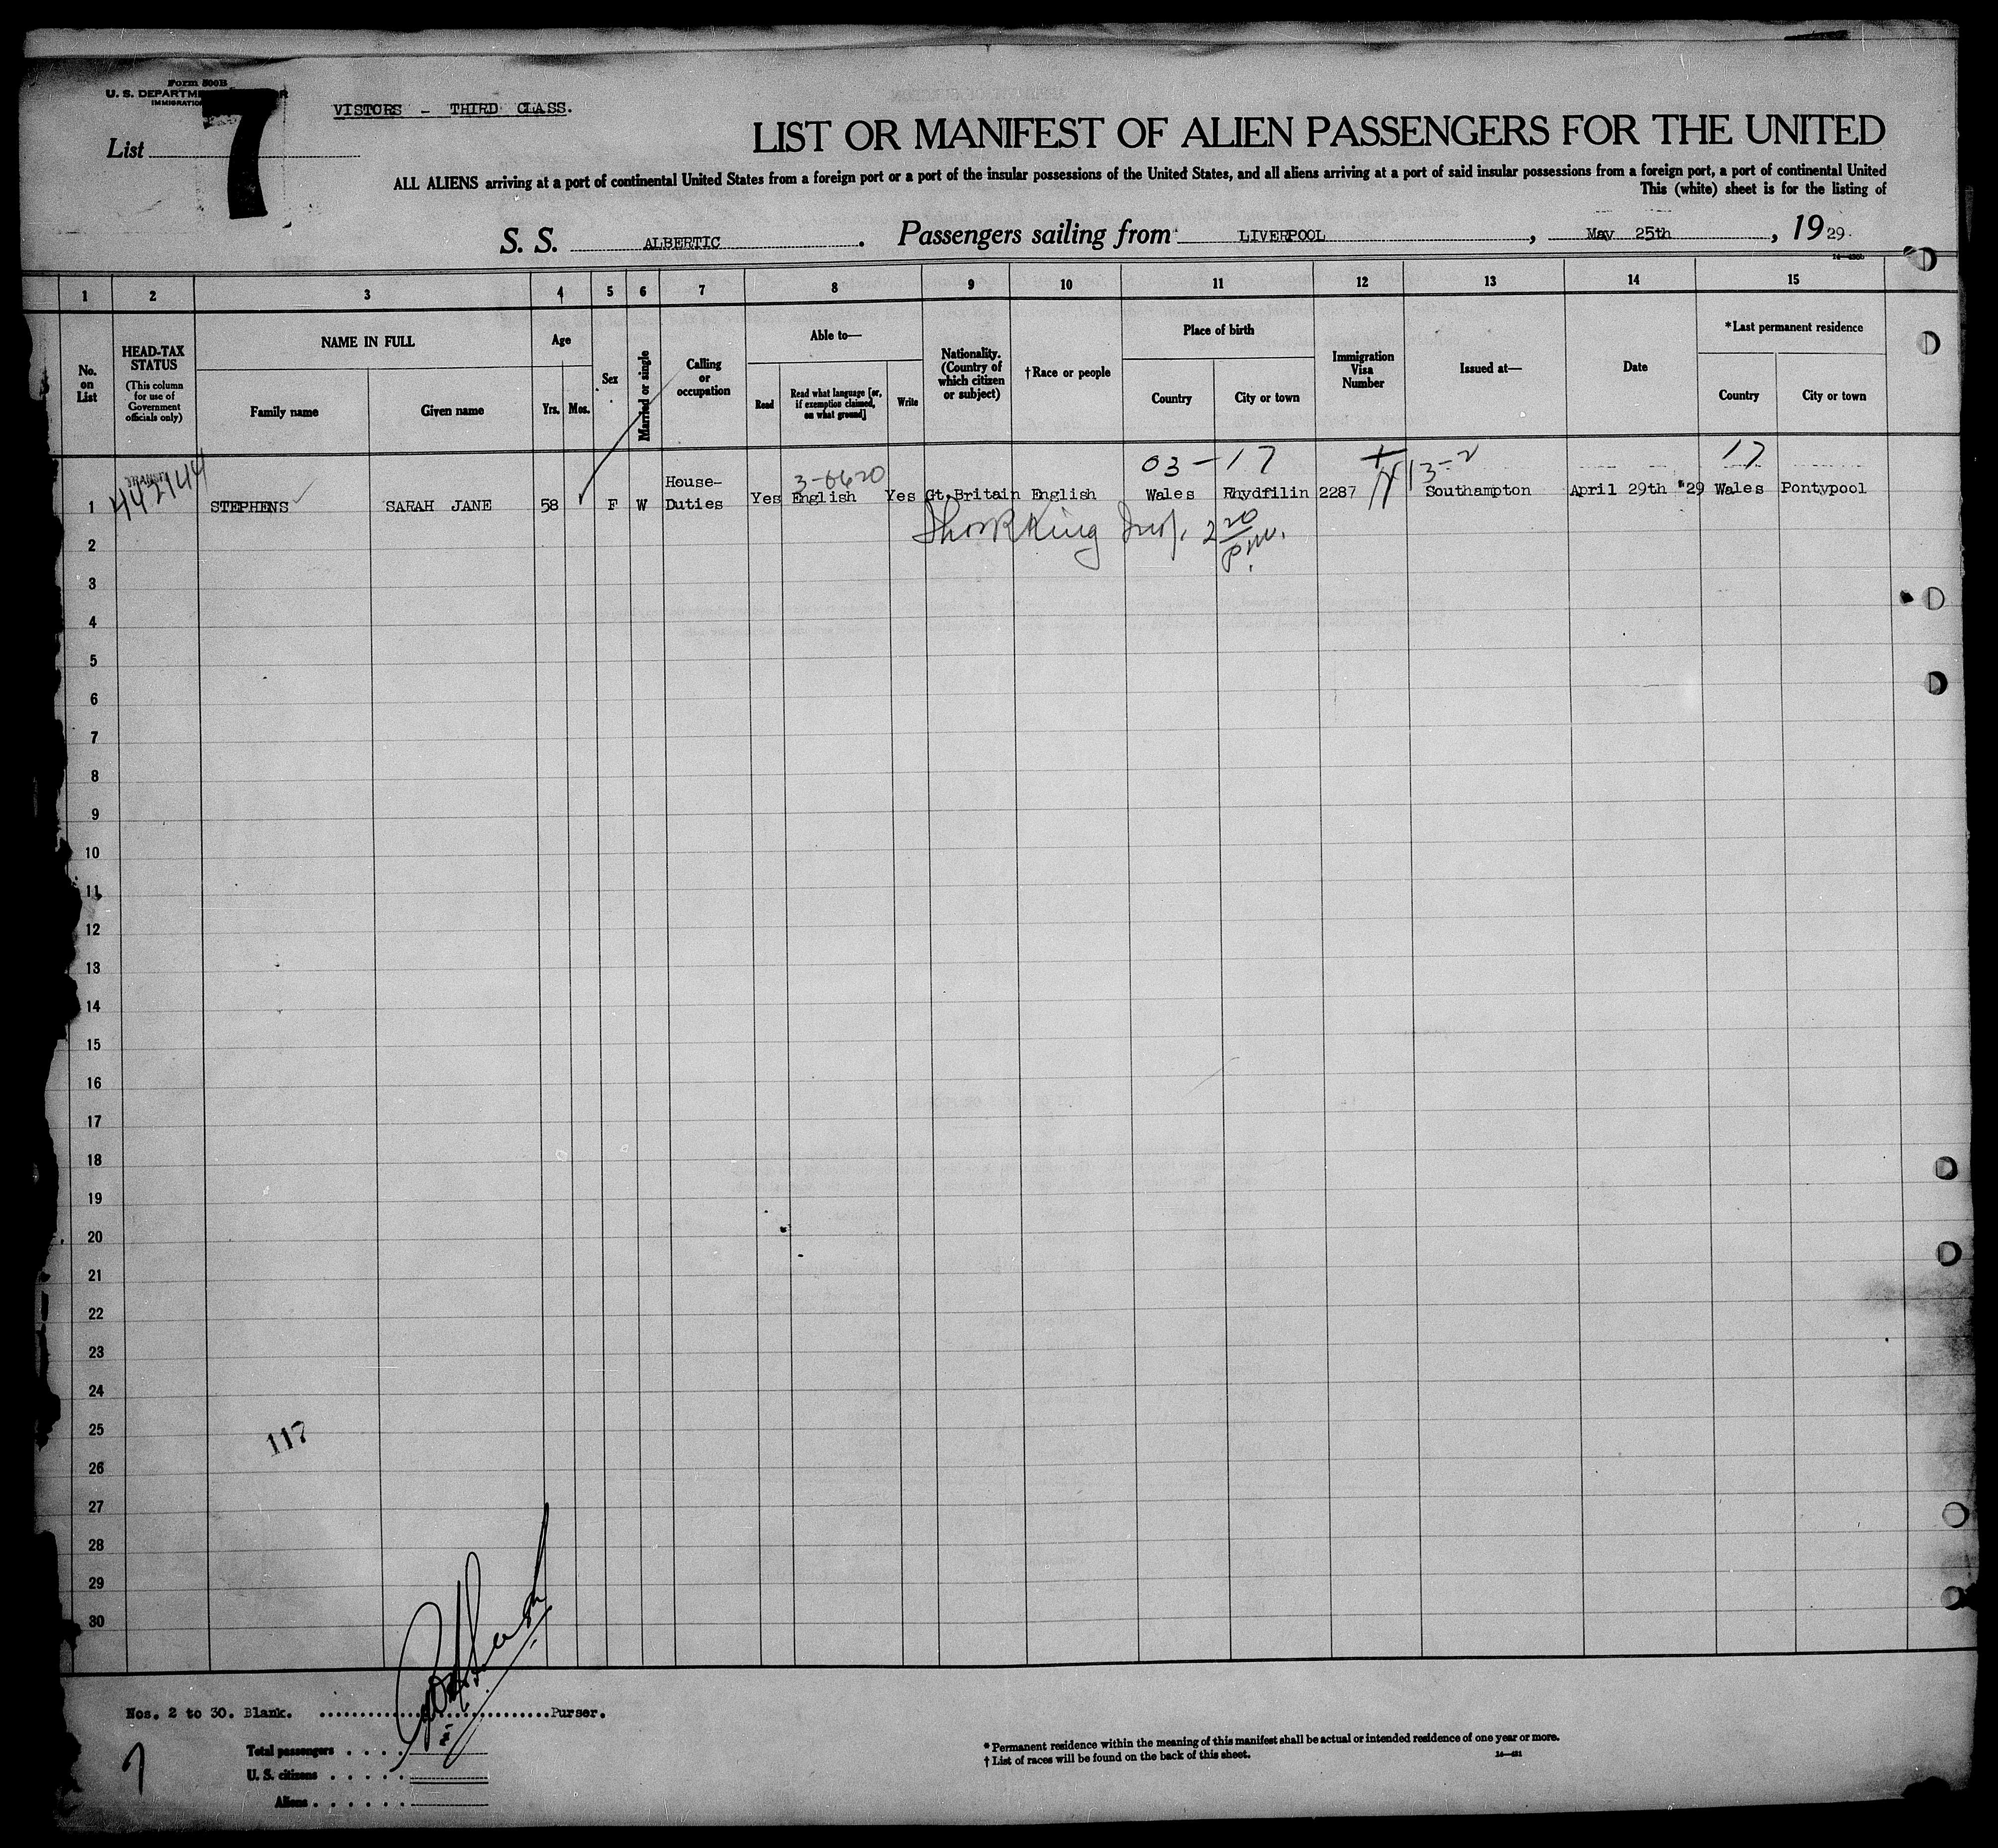 Form 500B
U. S. DEPARTM
IMMIGRATIO
7
List
VISTORS - THIRD CLASS.
LIST OR MANIFEST OF ALIEN PASSENGERS FOR THE UNITED
ALL ALIENS arriving at a port of continental United States from a foreign port or a port of the insular possessions of the United States, and all aliens arriving at a port of said insular possessions from a foreign port, a port of continental United
This (white) sheet is for the listing of
S. S. ALBERTIC. Passengers sailing from LIVERPOOL, May 25th, 1929.
1 2 3 4 5 6 7 8 9 10 11 12 13 14 15
No. on List
HEAD-TAX STATUS
(This column for use of Government officials only)
NAME IN FULL
Family name
Given name
Age
Yrs. Mos.
Sex
Married or single
Calling or occupation
Able to—
Read
Read what language [or, if exemption claimed, on what ground]
Write
Nationality. (Country of which citizen or subject)
†Race or people
Place of birth
Country
City or town
Immigration Visa Number
Issued at—
Date
*Last permanent residence
Country
City or town
3-6620 03-17 13-2 17
1 442144 STEPHENS SARAH JANE 58 F W House-Duties Yes English Yes Gt.Britain English Wales Rhydfilin 2287 Southampton April 29th '29 Wales Pontypool
King 2 20 P.M.
2
3
4
5
6
7
8
9
10
11
12
13
14
15
16
17
18
19
20
21
22
23
24
25
117
26
27
28
29
30
Nos. 2 to 30. Blank. Purser.
Total passengers
U. S. citizens
Aliens
7
* Permanent residence within the meaning of this manifest shall be actual or intended residence of one year or more.
† List of races will be found on the back of this sheet.